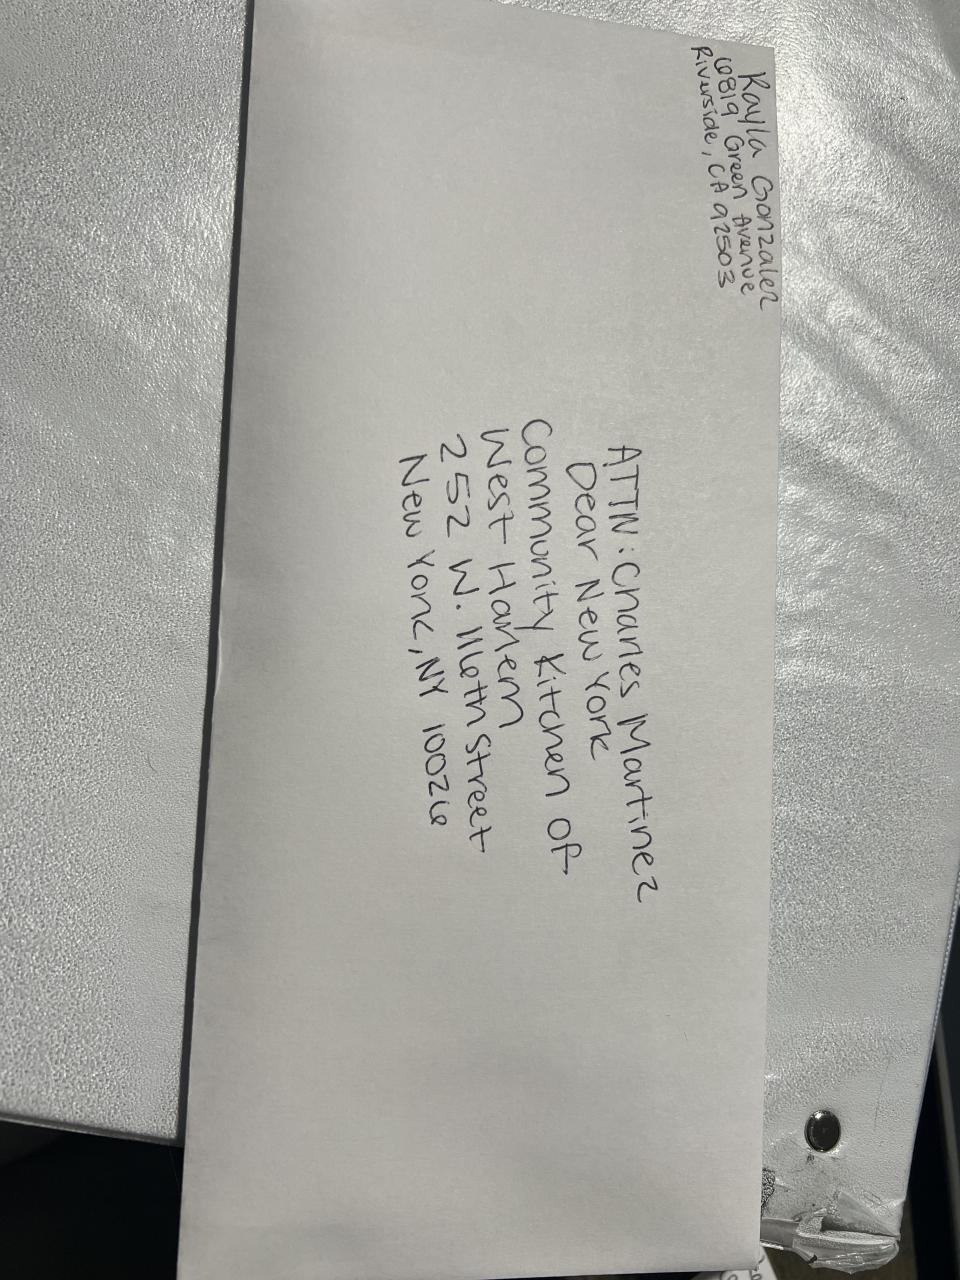 Kayla Gonzalez
6819 Green Avenue
Riverside, CA 92503
ATTN: Charles Martinez
Dear New York
Community Kitchen of
West Harlem
252 W. 116th Street
New York, NY 10026